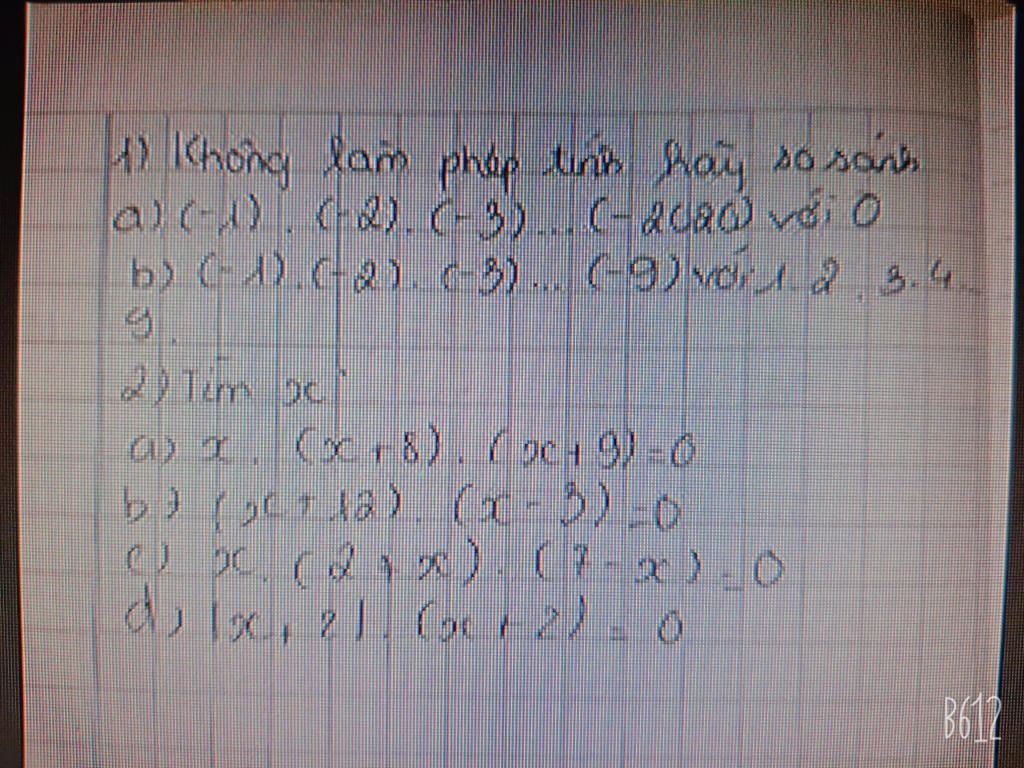 1) Không làm phép tính hãy so sánh
a) (-1) . (-2) . (-3) ... (-2020) với 0
b) (-1) . (-2) . (-3) ... (-9) với 1. 2 . 3. 4 ...
9.
2) Tìm x
a) x . (x + 8) . (x + 9) = 0
b) (x + 12) . (x - 3) = 0
c) x . (2 + x) . (7 - x) = 0
d) (x + 2) = 0
B612